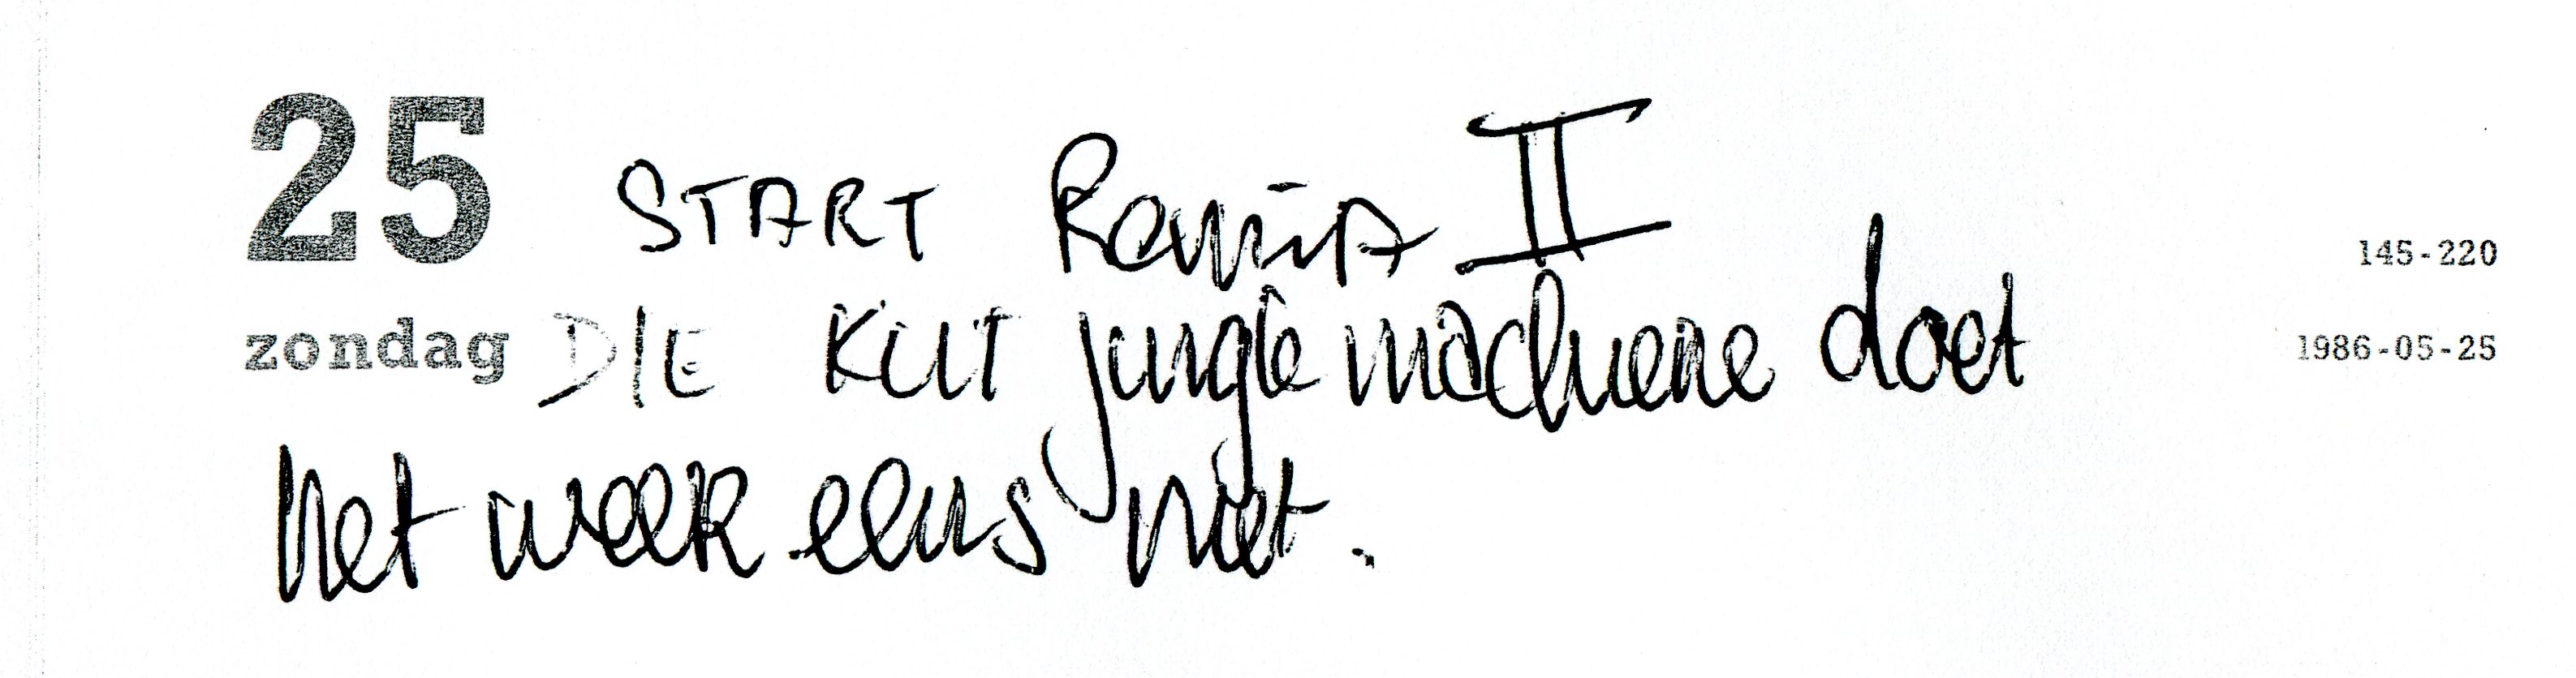 25 START Romina II
145-220
zondag DIE KUT jungle machiene doet
1986-05-25
het weer eens niet.